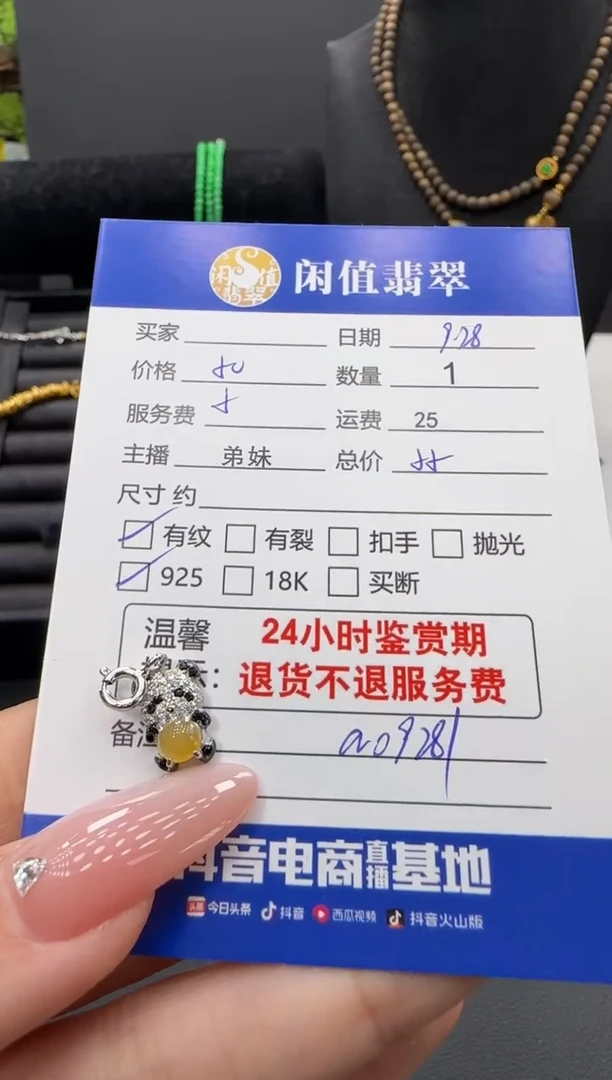 闲值翡翠 闲值翡翠
买家 日期 9.28
价格 50 数量 1
服务费 5 运费 25
主播 弟妹 总价 55
尺寸 约
有纹 有裂 扣手 抛光
925 18K 买断
温馨 24小时鉴赏期
示： 退货不退服务费
备注 a0928
抖音电商直播基地
头条 今日头条 抖音 西瓜视频 抖音火山版